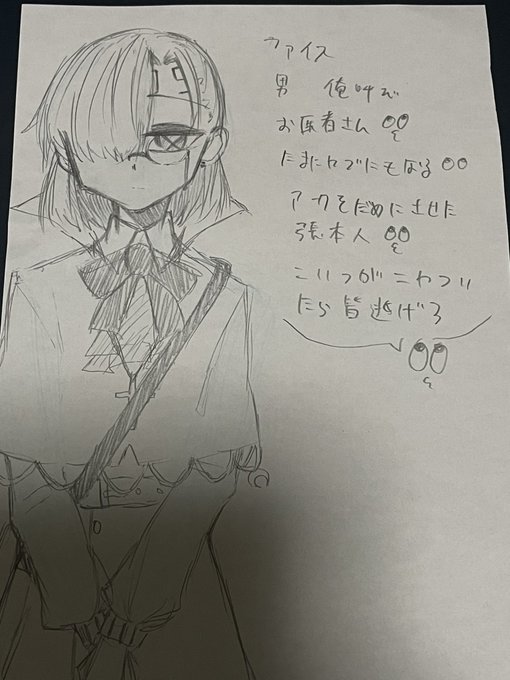 ファイス
男 俺呼び
お医者さん
たまにロボにもなる
アークをだめにさせた
張本人
こいつが
たら皆逃げろ